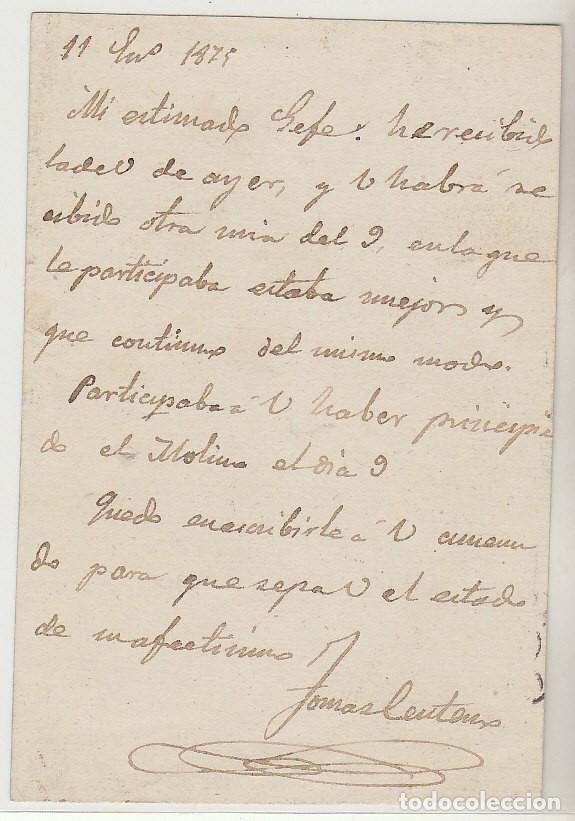 11 Enº 1875
Mi estimado Gefe: he recibido
la de V de ayer, y V habrá re
cibido otra mia del 9, en la que
le participaba estaba mejor y
que continuo del mismo modo.
Participaba á V haber principia
do el Molino el dia 9
Quedo en escribirle á V amenu
do para que sepa V el estado
de su afectisimo
Tomas Centeno
todocoleccion